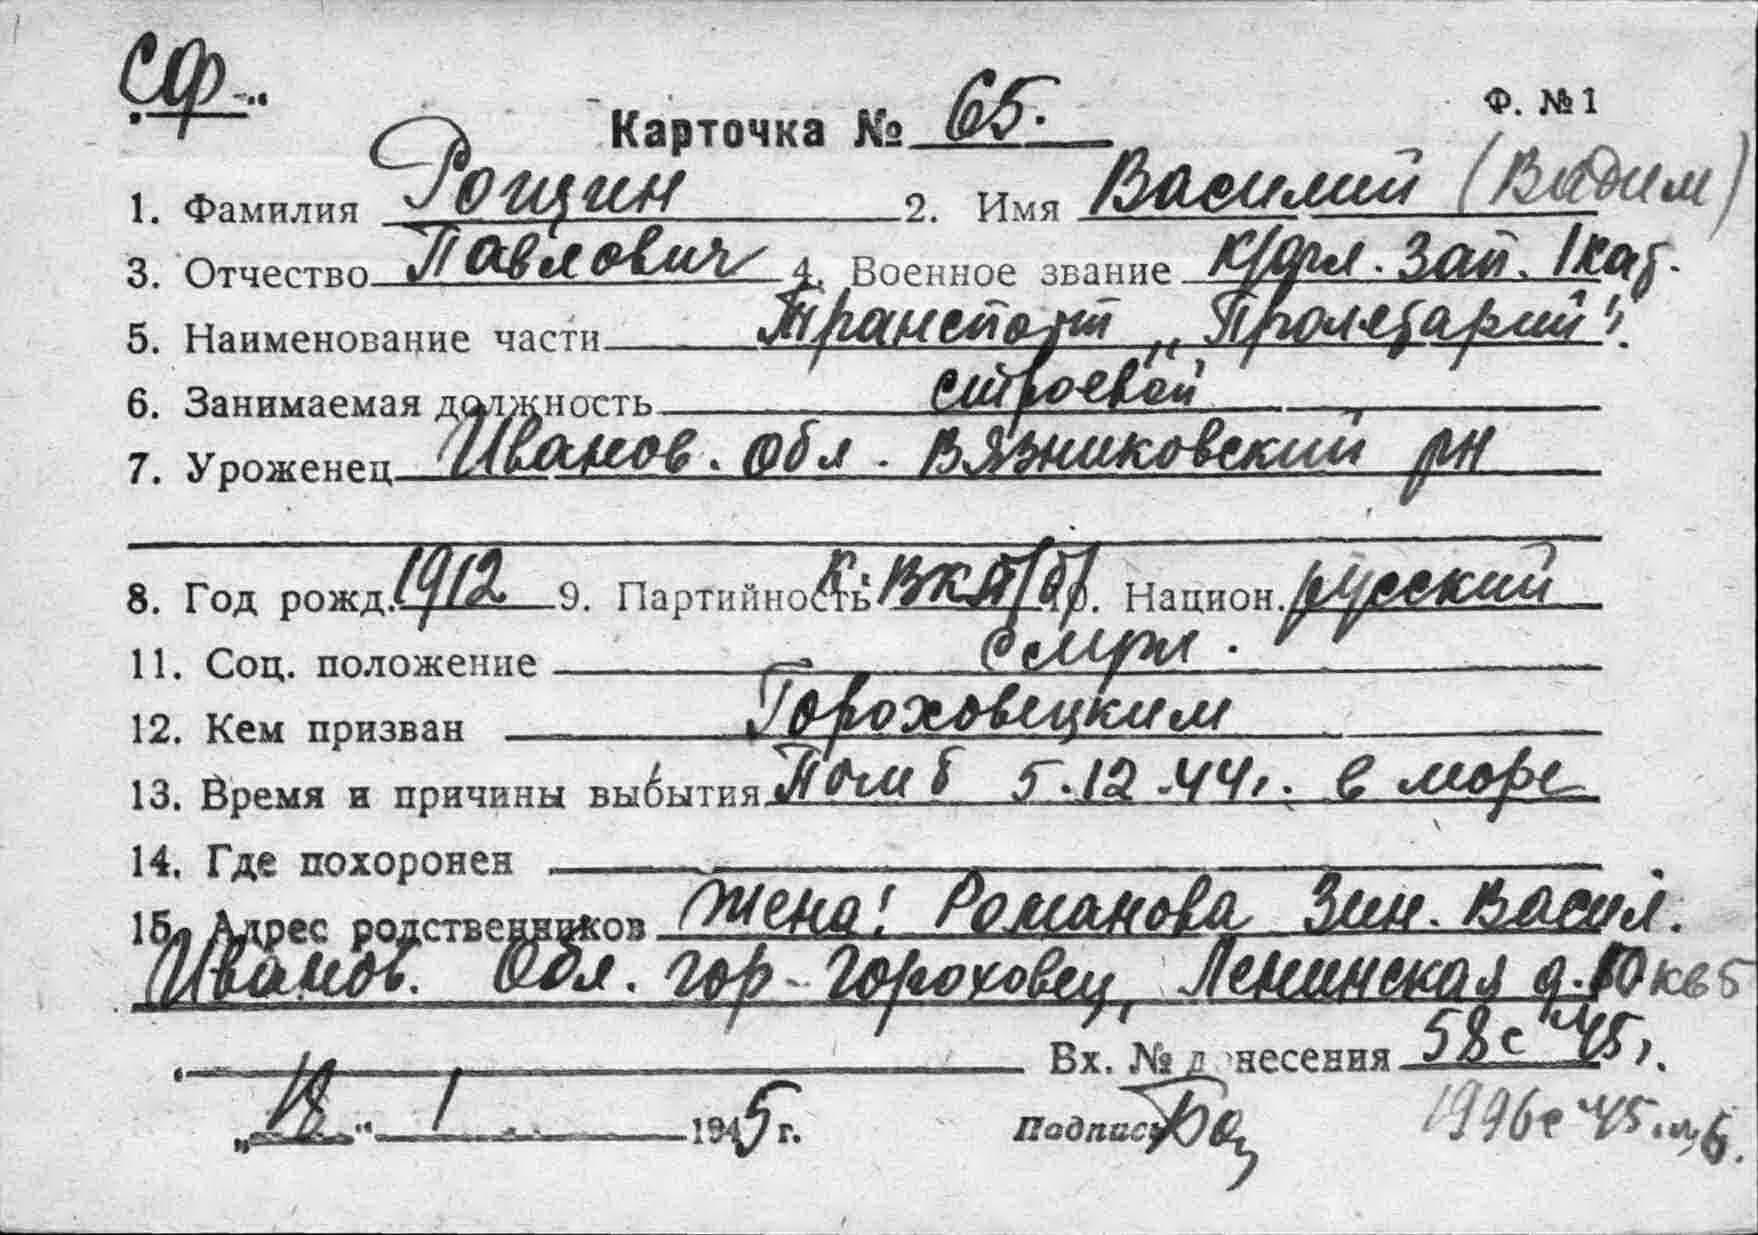 СФ
Ф. №1
Карточка № 65.
1. Фамилия Рощин 2. Имя Василий (Вадим)
3. Отчество Павлович 4. Военное звание к/фл. зап. 1 кат.
5. Наименование части Транспорт „Пролетарий".
6. Занимаемая должность строевой
7. Уроженец Иванов. обл. Вязниковский рн
8. Год рожд. 1912 9. Партийность К. ВКП/б/ 10. Национ. русский
11. Соц. положение
12. Кем призван Гороховецким
13. Время и причины выбытия Погиб 5.12.44г. в море
14. Где похоронен
15. Адрес родственников Жена: Романова Зин. Васил.
Иванов. Обл. гор. Гороховец, Ленинская д. 10 кв 5
Вх. № донесения 58с 45г.
„18" 1 1945 г. Подпись 1996с 45